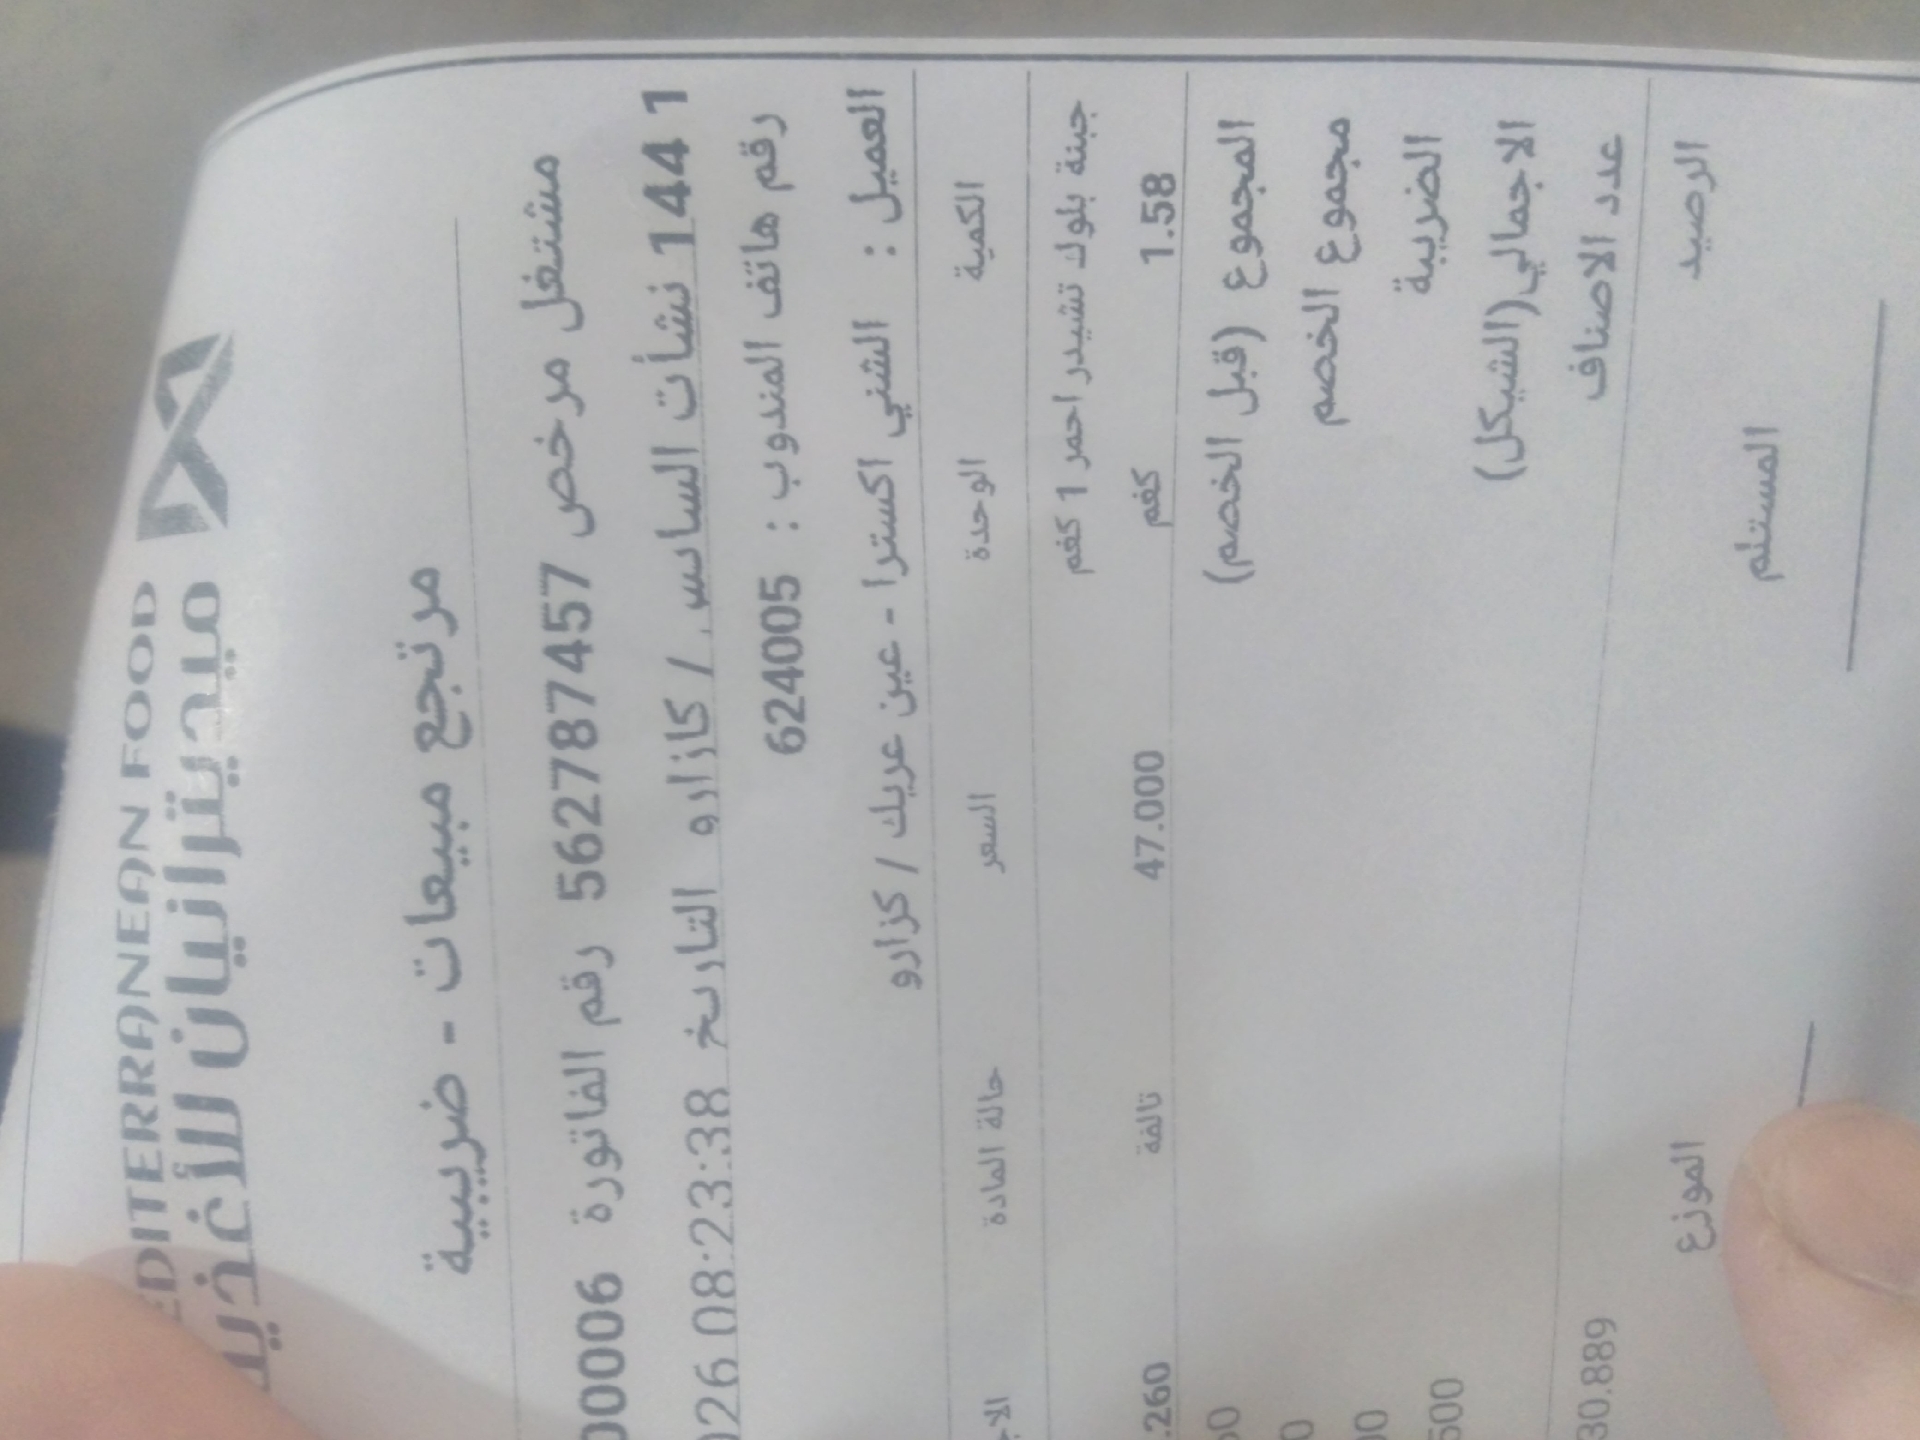 EDITERRANEAN FOOD
ميديترانيان للأغذية
مرتجع مبيعات - ضريبية
مشتغل مرخص 562787457 رقم الفاتورة 00006
1 144 نشأت الساسي / كازارو التاريخ 026 08:23:38
رقم هاتف المندوب : 624005
العميل : الشني اكسترا - عين عريك / كزارو
الكمية الوحدة السعر حالة المادة الاج
جبنة بلوك تشيدر احمر 1 كغم
1.58 كغم 47.000 تالفة .260
المجموع (قبل الخصم) 60
مجموع الخصم 0
الضريبة 00
الاجمالي(الشيكل) 600
عدد الاصناف
الرصيد 30.889
المستلم الموزع